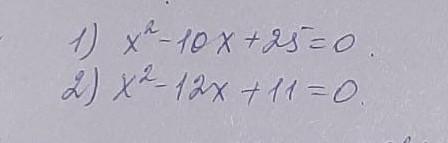 1) x²-10x+25=0.
2) x²-12x+11=0.